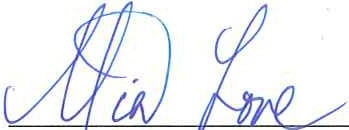 Mia Love